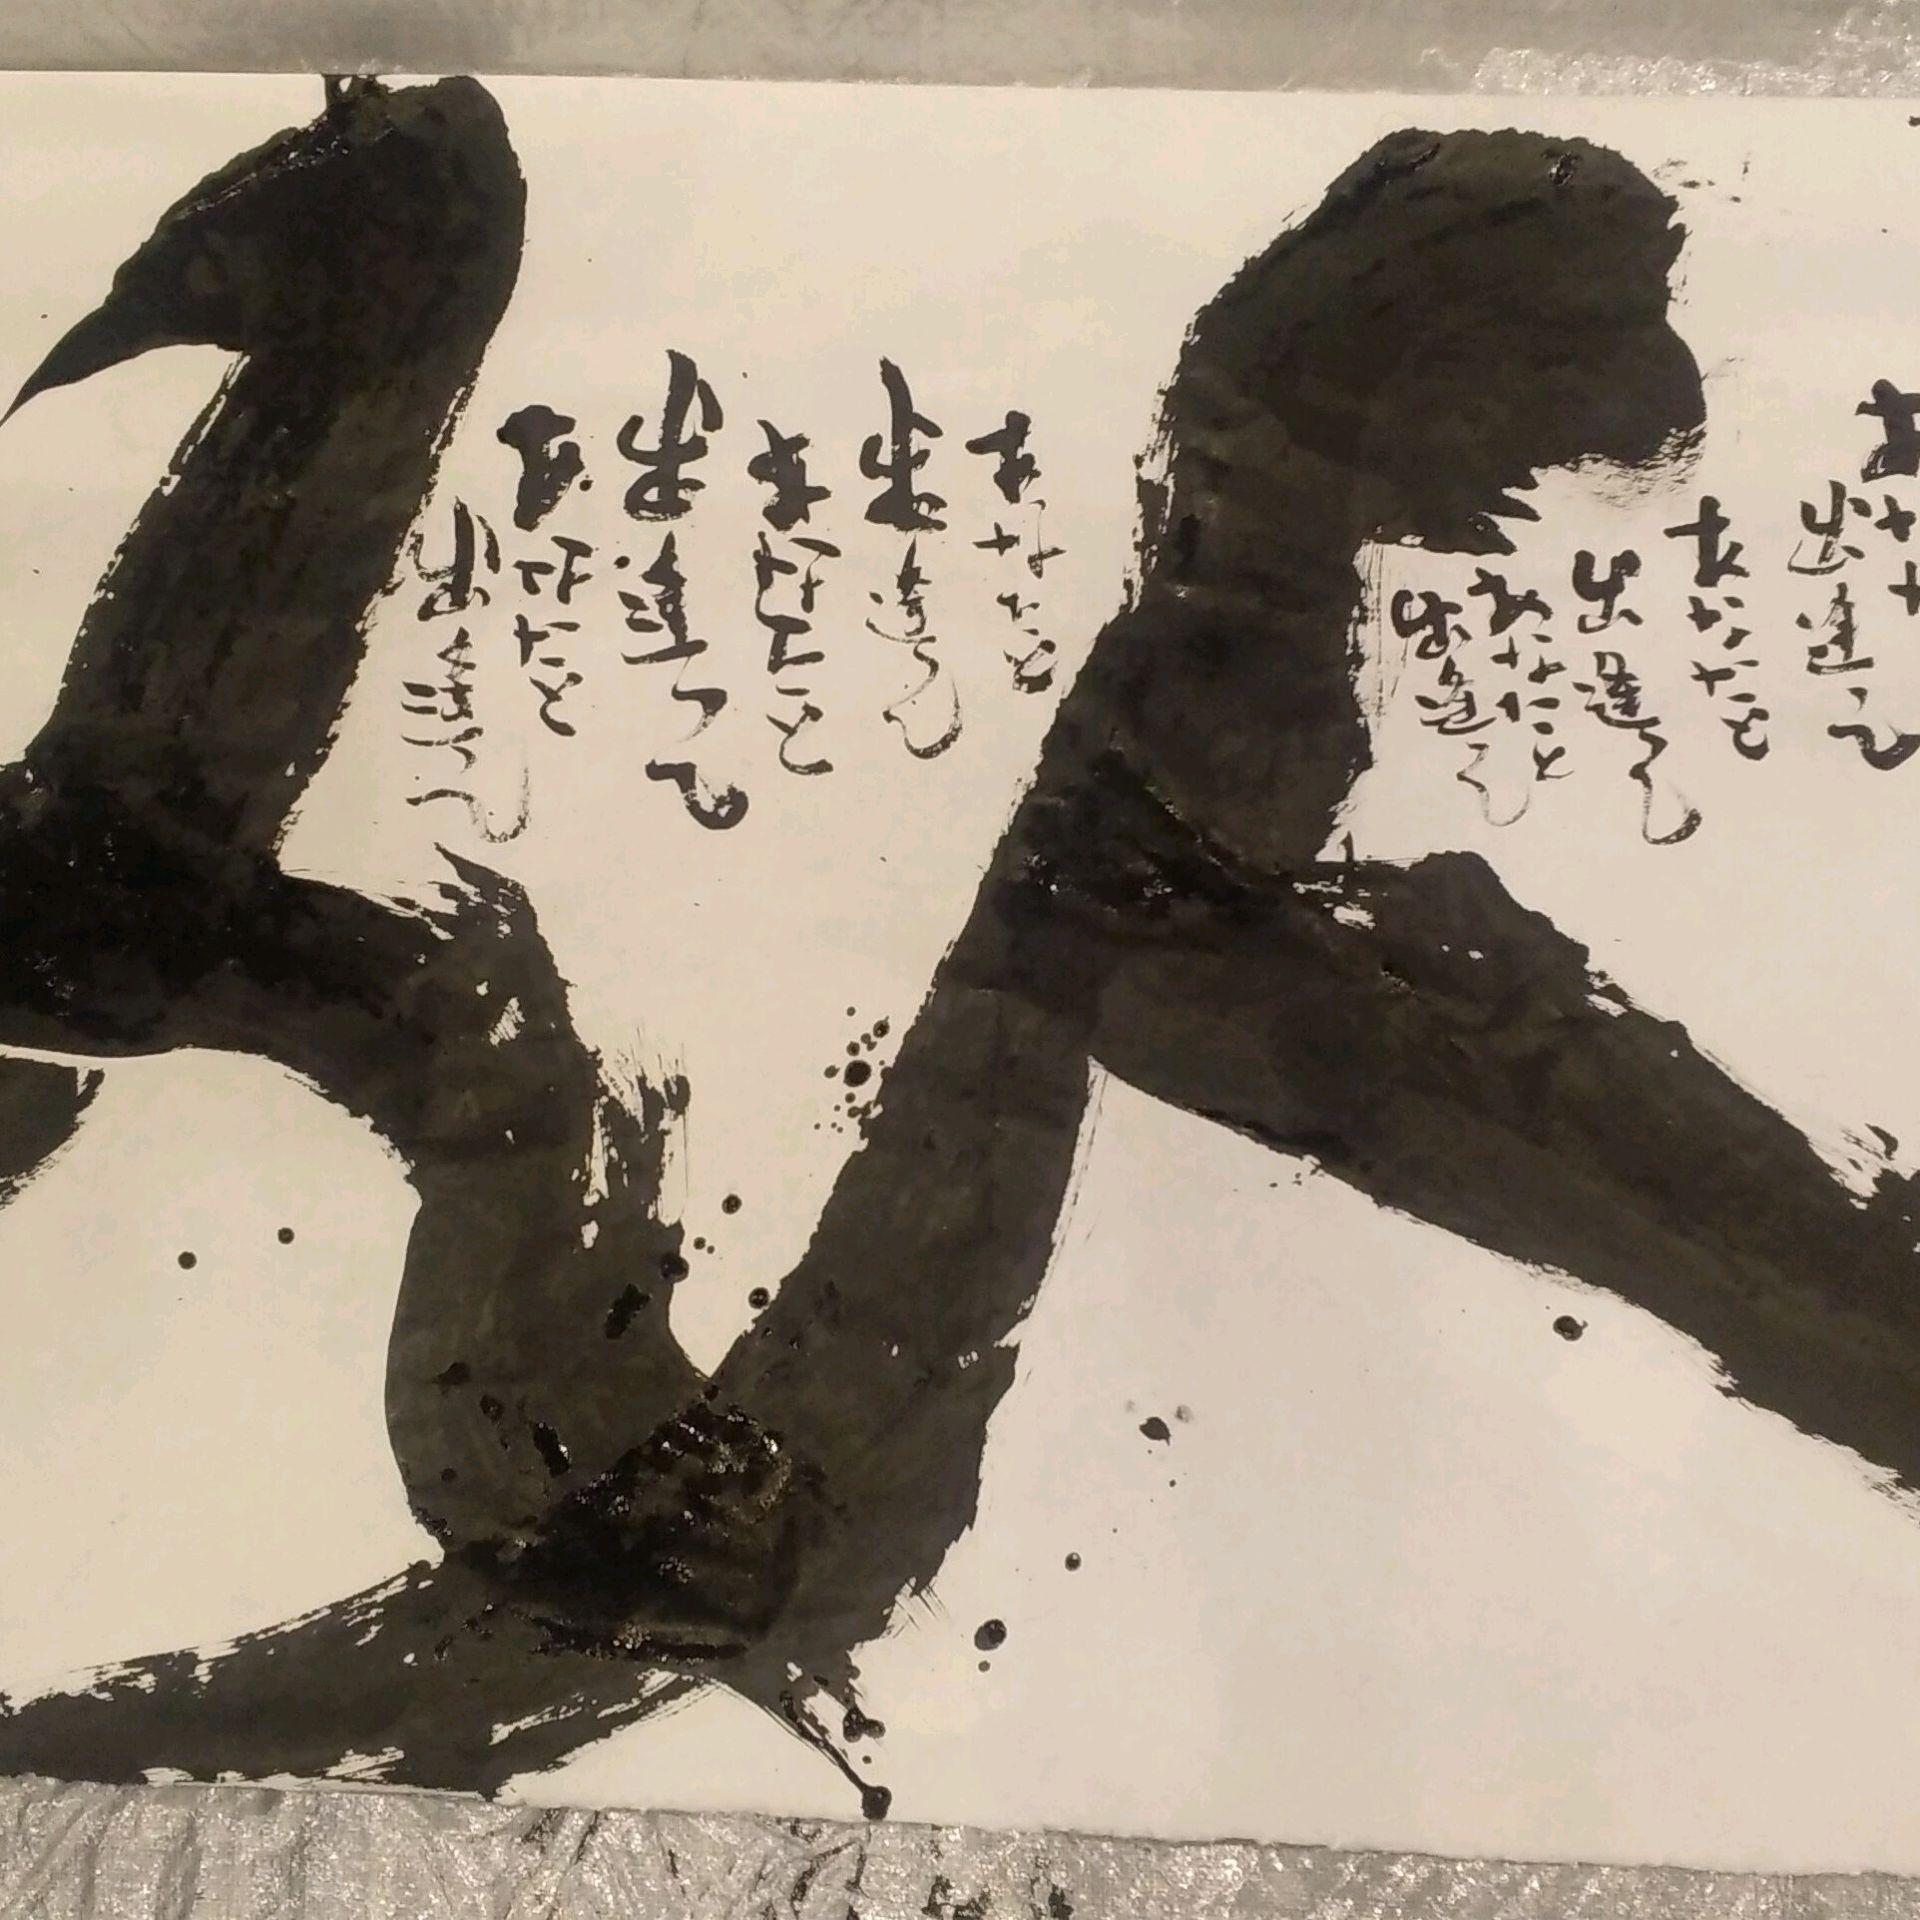 あなたと
出逢って
あなたと
出逢って
あなたと
出逢って
あなたと
出逢って
あなたと
出逢って
あなたと
出逢って